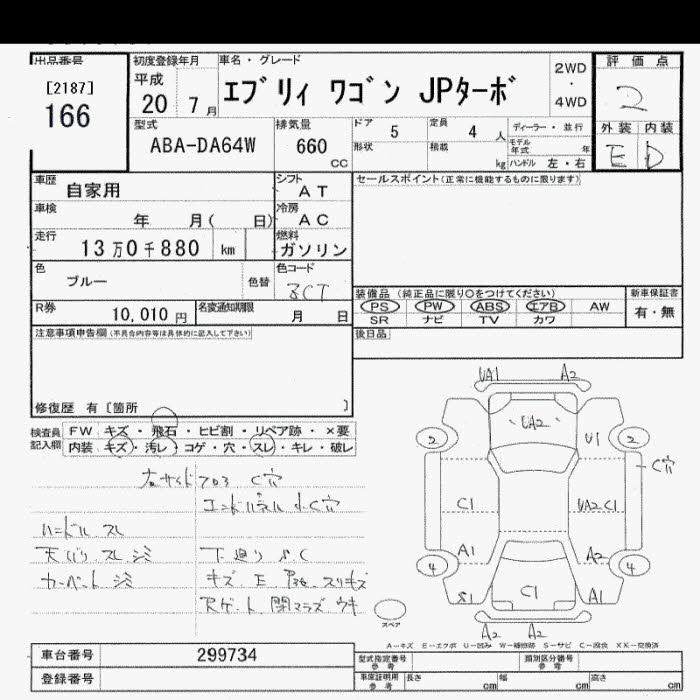 出品番号
[2187]
166
初度登録年月
平成
20 7 月
車名・グレード
エブリィ ワゴン JPターボ
2WD
・
4WD
評価点
2
外装 内装
E D
型式
ABA-DA64W
排気量
660
CC
ドア 5
定員 4 人
ディーラー・並行
形状
積載 kg
モデル年式 年
ハンドル 左・右
車歴 自家用
シフト AT
セールスポイント(正常に機能するものに限ります)
車検 年 月( 日)
冷房 AC
走行 13万0千880 km
燃料 ガソリン
色 ブルー
色替
色コード ZCT
装備品(純正品に限り○をつけてください)
新車保証書
PS PW ABS エアB AW
有・無
SR ナビ TV カワ
R券 10,010 円
名変通知期限 月 日
注意事項申告欄(不具合内容等は具体的に記入して下さい)
後日品
修復歴 有〔箇所 〕
検査員記入欄
FW キズ・飛石・ヒビ割・リペア跡・×要
内装 キズ・汚レ・コゲ・穴・スレ・キレ・破レ
C穴
エンドパネル 小C穴
ハンドル スレ
天バリ スレ シミ
カーペット シミ
下廻り サC
Rゲート 閉マラズ ウキ
UA1 A2
UA2
2 U1 2
C穴
C1 UA2 C1
A1 A2
4 4
S1 C1 A1
スペア
A2 A2
A−キズ E−エクボ U−凹み W−補修跡 S−サビ C−腐食 XX−交換済
車台番号 299734
型式指定番号 参考
類別区分番号 参考
登録番号
車庫証明用 参考
長さ cm
幅 cm
高さ cm